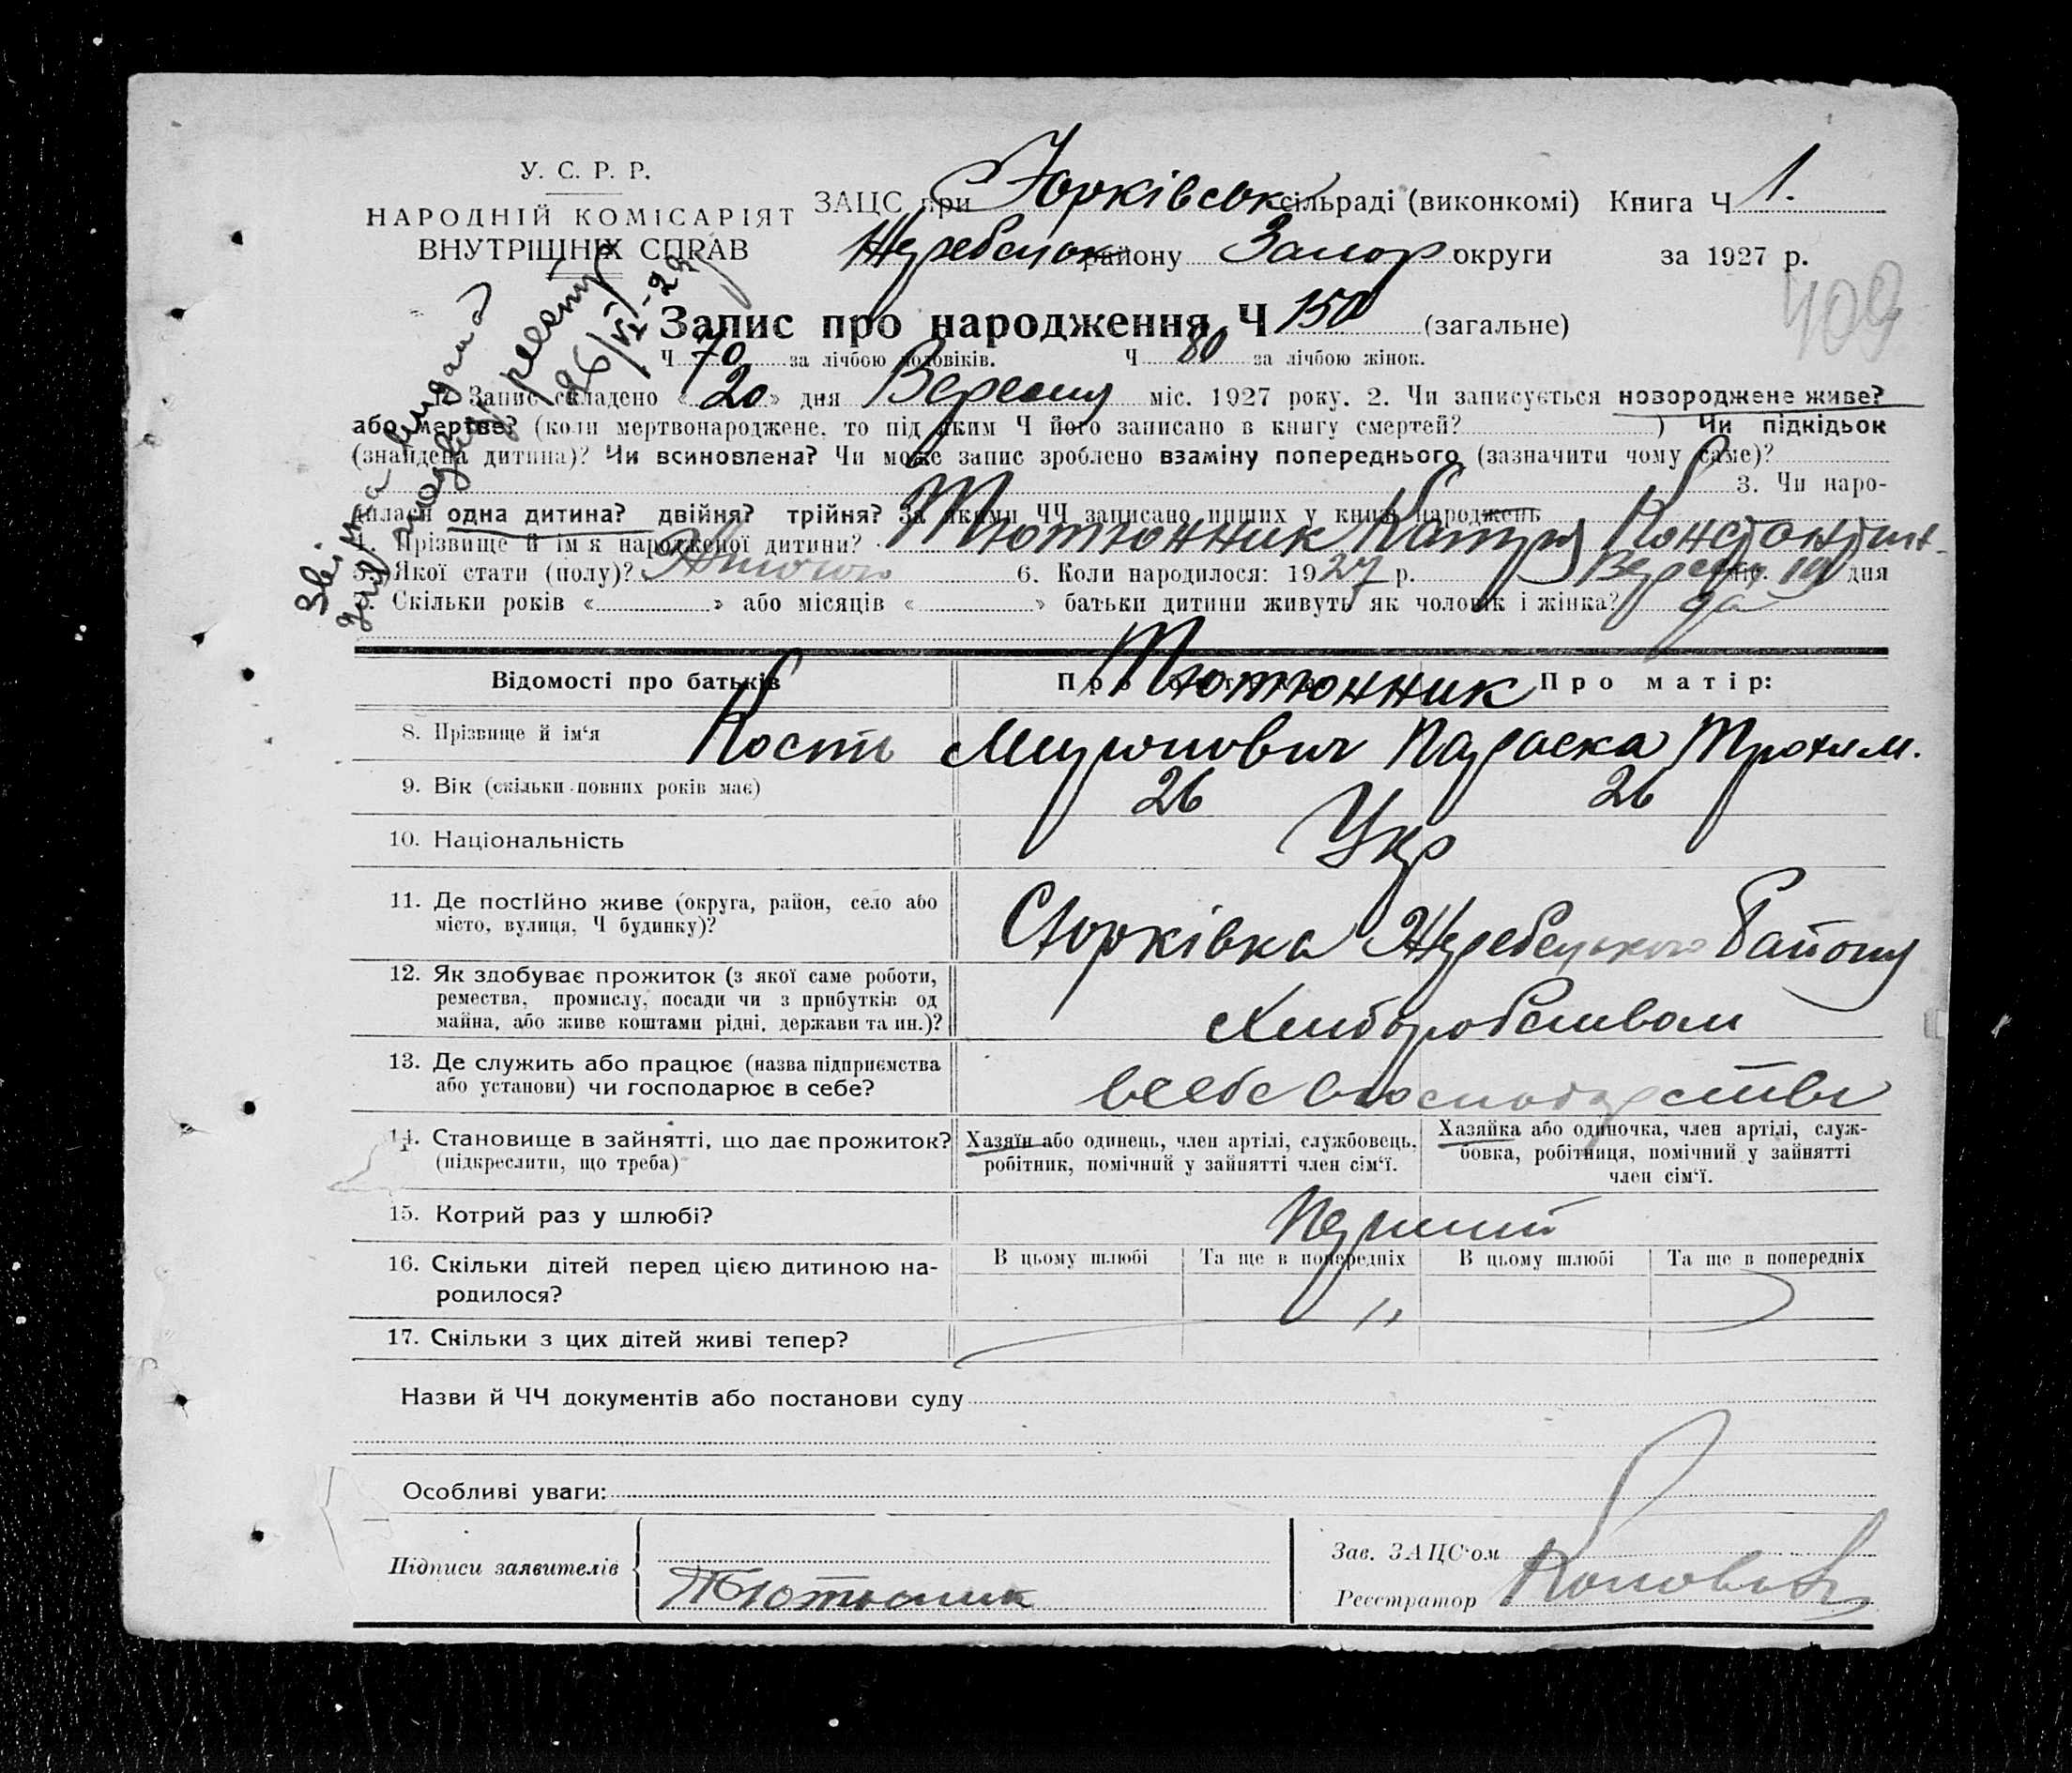 У. С. Р. Р.
НАРОДНІЙ КОМІСАРІЯТ
ВНУТРІШНІХ СПРАВ
ЗАЦС при Юрківськ сільраді (виконкомі) Книга Ч 1.
Жеребецьк району Запор округи за 1927 р.
409
Запис про народження Ч 150 (загальне)
Ч 70 за лічбою чоловіків. Ч 80 за лічбою жінок.
1. Запис складено «20» дня Вересня міс. 1927 року. 2. Чи записується новороджене живе?
або мертве? (коли мертвонароджене, то під яким Ч його записано в книгу смертей? ) Чи підкідьок
(знайдена дитина)? Чи всиновлена? Чи може запис зроблено взаміну попереднього (зазначити чому саме)?
3. Чи наро-
дилася одна дитина? двійня? трійня? За якими ЧЧ записано инших у книзі народжень
4. Прізвище й ім'я народженої дитини? Тютюнник Константин.
5. Якої стати (полу)? Жіночої 6. Коли народилося: 1927 р. Вересня міс. 19 дня
7. Скільки років « » або місяців « » батьки дитини живуть як чоловік і жінка? да
26/VI-29
Відомості про батьків Про батька: Про матір:
Тютюнник
8. Прізвище й ім'я Кость Миронович Параска Трохим.
9. Вік (скільки повних років має) 26 26
10. Національність Укр
11. Де постійно живе (округа, район, село або
місто, вулиця, Ч будинку)?
Юрківка Жеребецького Району
12. Як здобуває прожиток (з якої саме роботи,
ремества, промислу, посади чи з прибутків од
майна, або живе коштами рідні, держави та ин.)?
Хліборобством
13. Де служить або працює (назва підприємства
або установи) чи господарює в себе?
в себе в господарстві
14. Становище в зайнятті, що дає прожиток?
(підкреслити, що треба)
Хазяїн або одинець, член артілі, службовець,
робітник, помічний у зайнятті член сім'ї.
Хазяйка або одиночка, член артілі, служ-
бовка, робітниця, помічний у зайнятті
член сім'ї.
15. Котрий раз у шлюбі? Перший
16. Скільки дітей перед цією дитиною на-
родилося?
В цьому шлюбі Та ще в попередніх В цьому шлюбі Та ще в попередніх
17. Скільки з цих дітей живі тепер?
Назви й ЧЧ документів або постанови суду
Особливі уваги:
Підписи заявителів
Тютюник
Зав. ЗАЦС'ом
Реєстратор